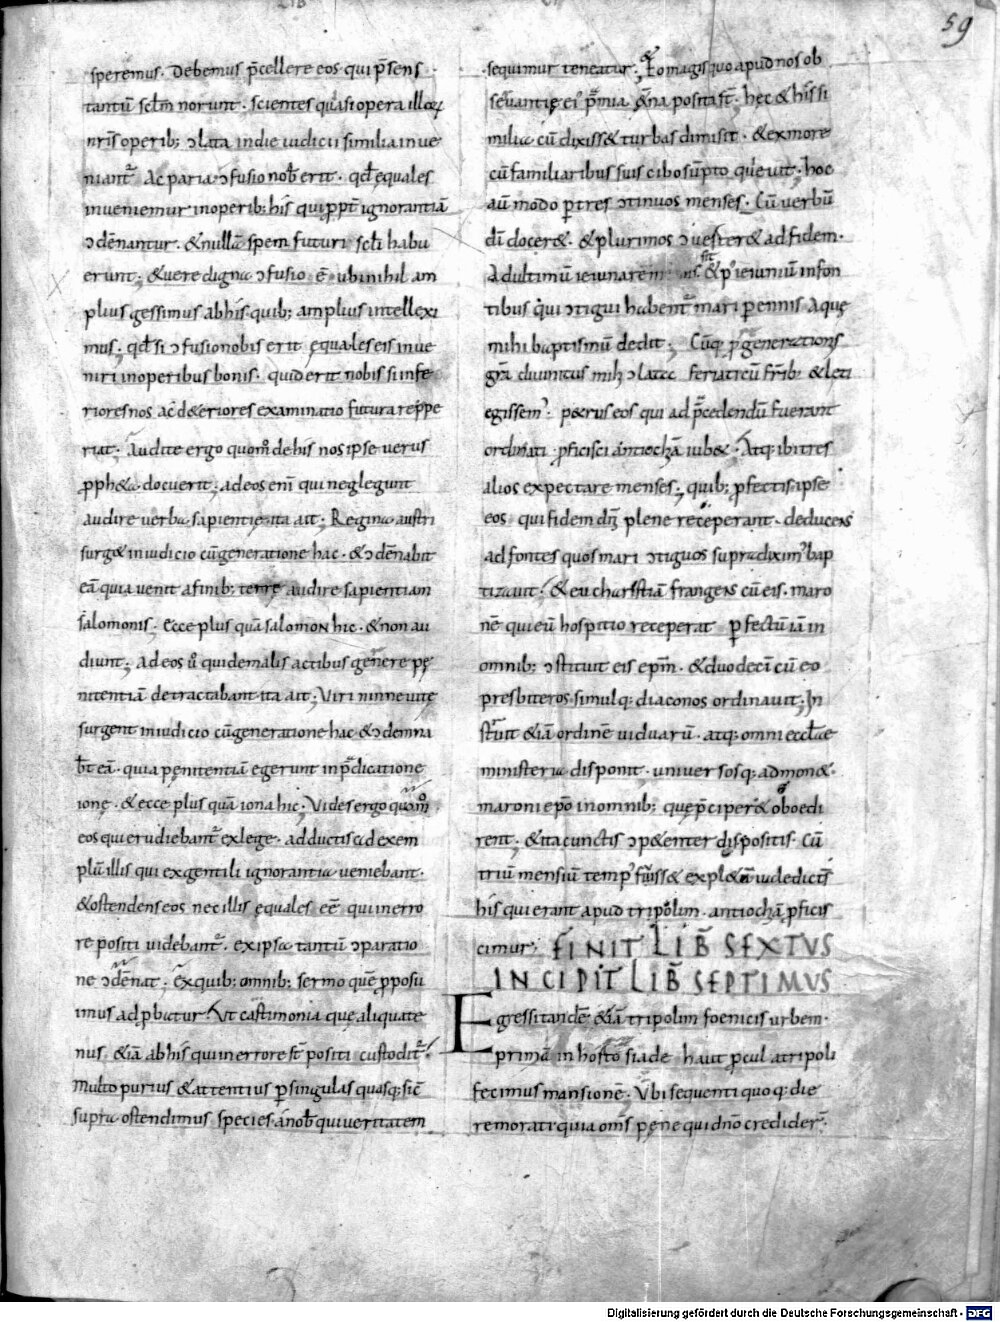 59
speremus. Debemus p̄cellere eos. qui p̄sens
tantū sclm̄ norunt. scientes quasi opera illoꝝ
nr̄is operib; ↄlata in die iudicii similia inue
niantˀ. Ac par ia ↄfusio nob̄ erit. qd̄ equales
inueniemur in operib; his qui ꝓpt̄ ignorantiā
ↄdēnantur. & nullā spem futuri scl̄i habu
erunt; & uere digna ↄfusio ē ubi nihil am
plius gessimus ab his. quib; amplius intellexi
mus; qd̄ si ↄfusio nobis erit ęquales eis inue
niri in operibus bonis. quid erit nobis si infe
riores nos ac d&eriores examinatio futura reppe
riat. Audite ergo quom̊ de his nos ipse uerus
ꝓph&a docuerit; ad eos eni qui neglegunt
audire uerba sapientię ita ait; Regina austri
surg& in iudicio cū generatione hac. & ↄdēnabit
eā quia uenit a finib; terrę audire sapientiam
salomonis; Ecce plus quā salomon hic. & non au
diunt; ad eos ů qui de malis actibus genere pę
nitentiā detractabant ita ait; Viri nineuite
surgent in iudicio cū generatione hac & ↄdemna
b̄t eā. quia pęnitentiā egerunt in p̄dicatione
ionę. & ecce plus quā iona hic; Vides ergo quom̊
eos qui erudiebantˀ ex lege. adductis ad exem
plū illis qui ex gentili ignorantia ueniebant.
& ostendens eos nec illis ęquales eē qui in erro
re positi uidebantˀ. ex ipsa tantū ↄparatio
ne ↄdēnat. ex quib; omnib; sermo quē ꝓposu
imus adꝓbatur. Ut castimonia quę aliquate
nus. &iā ab his qui in errore st̄ positi custoditˀ.
multo purius & attentius ꝑ singulas quasq; sic̄
supra ostendimus species. a nob̄ qui ueritatem
sequimur teneatur. Eo magis quo apud nos ob
seruantię ei p̄mia &̄na posita st̄. hęc & his si
milia cū dixiss& turbas dimisit. & ex more
cū familiaribus suis cibo sūpto quieuit. hoc
aū modo ꝑ tres ↄtinuos menses. Cū uerbū
dī docer&. & plurimos ↄuerter& ad fidem.
Ad ultimū ieiunare & pˀ ieiuniū in fon
tibus qui ↄtigui habentˀ mari perennis aquę
mihi baptismū dedit; Cūq; ꝓ generationis
grā diuinitus mihi ↄlatę feriati cū fr̄ib; & leti
egissemˀ. petrus eos qui ad p̄cedendū fuerant
ordinati ꝓficisci antiochiā iub&. Atq; ibi tres
alios expectare menses; quib; ꝓfectis ipse
eos qui fidem dn̄i plene receperant. deducens
ad fontes quos mari ↄtiguos supra diximˀ bap
tizauit. & eucharistiā frangens cū eis. maro
nē qui eū hospitio receperat ꝑfectū iā in
omnib; ↄstituit eis ep̄m. & duodeci cū eo
presbiteros. simulq; diaconos ordinauit; In
stituit &iā ordinē uiduarū. atq; omni eccl̄ae
ministeria disponit. uniuersosq; admon&.
maroni ep̄o in omnib; quę p̄ciper& oboedi
rent. & ita cunctis ↄp&enter dispositis. Cū
triū mensiū tempˀ fuiss& expl&ū ualedictis
his qui erant apud tripolim. antiochiā ꝓficis
cimur; FINIT LIB̄ SEXTUS
INCIPIT LIB̄ SEPTIMUS
Egressi tandē &iā tripolim foenicis urbem.
primā in hosto siade haut ꝓcul a tripoli
fecimus mansionē. Ubi sequenti quoq; die
remorati quia om̄s pęne qui dn̄o crediderˀ.
Digitalisierung gefördert durch die Deutsche Forschungsgemeinschaft - DFG